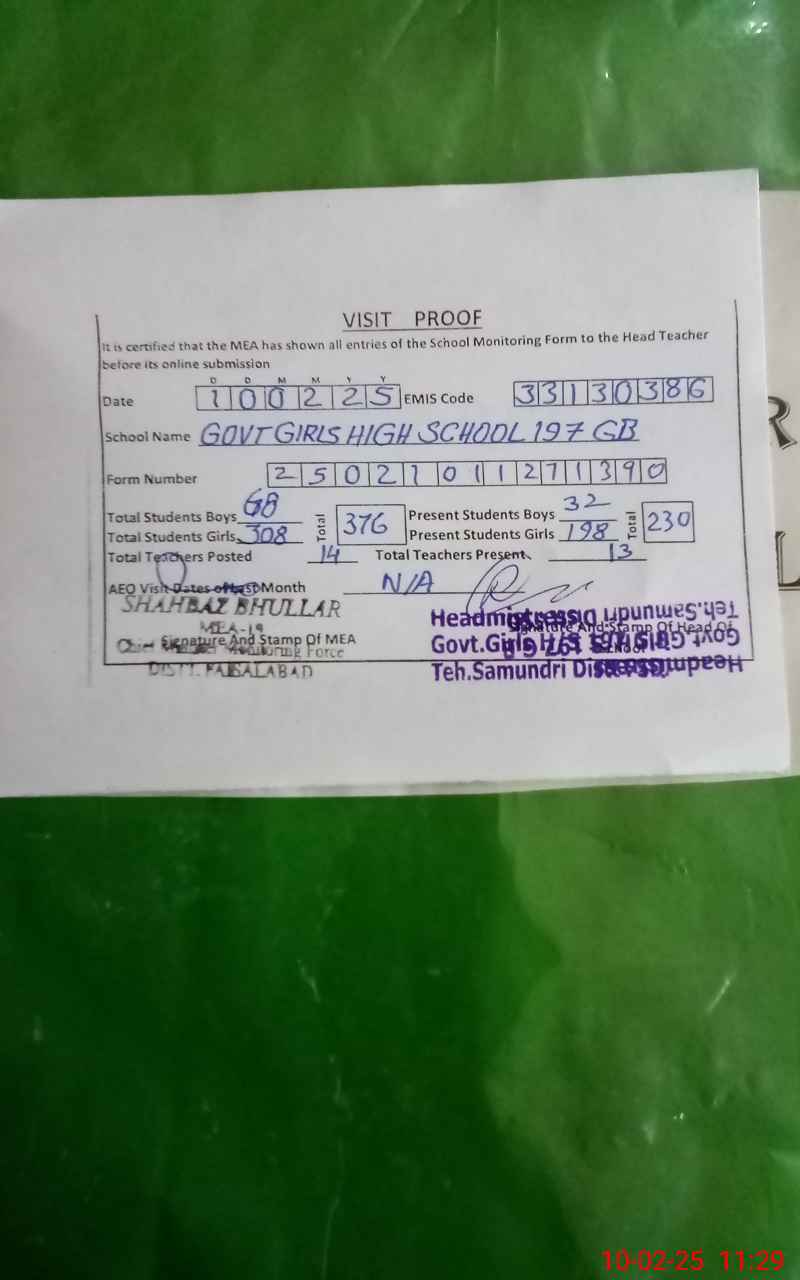 VISIT PROOF
It is certified that the MEA has shown all entries of the School Monitoring Form to the Head Teacher
before its online submission
D D M M Y Y
Date 100225 EMIS Code 33130386
School Name GOVT GIRLS HIGH SCHOOL 197 GB
Form Number 25021011271390
Total Students Boys 68 Total 376 Present Students Boys 32 Total 230
Total Students Girls 308 Present Students Girls 198
Total Teachers Posted 14 Total Teachers Present 13
AEO Visit Dates of Last Month N/A
SHAHBAZ BHULLAR
MEA-19
Signature And Stamp Of MEA
Monitoring Force
DISTT. FAISALABAD
Signature And Stamp Of Head Of
School
Headmistress
Govt.Girls H/S 197 G.B
Teh.Samundri
Teh.Samundri
Govt.Girls
Headmistress
R
L
10-02-25 11:29